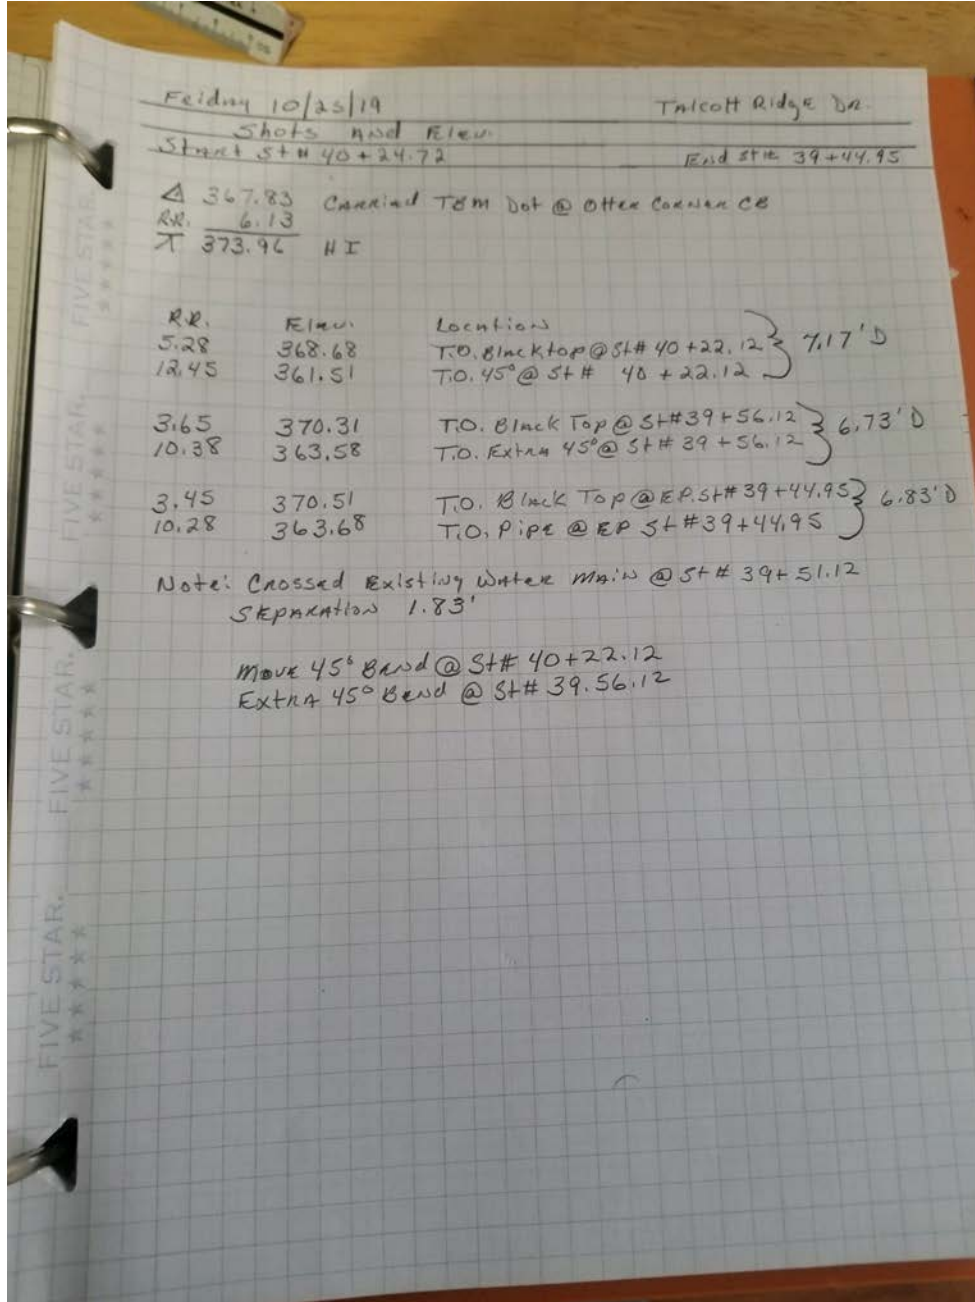 Friday 10/25/19 Talcott Ridge Dr.
Shots and Elev.
Start St# 40+24.72 End St# 39+44.95
△ 367.83 Carried TBM Dot @ Otter Corner CB
R.R. 6.13
⊼ 373.96 HI
R.R. Elev. Location
5.28 368.68 T.O. Blacktop @ St# 40+22.12 } 7.17' D
12.45 361.51 T.O. 45° @ St# 40+22.12
3.65 370.31 T.O. Black Top @ St# 39+56.12 } 6.73' D
10.38 363.58 T.O. Extra 45° @ St# 39+56.12
3.45 370.51 T.O. Black Top @ EP. St# 39+44.95 } 6.83' D
10.28 363.68 T.O. Pipe @ EP St# 39+44.95
Note: Crossed Existing Water Main @ St# 39+51.12
Separation 1.83'
Move 45° Bend @ St# 40+22.12
Extra 45° Bend @ St# 39.56.12
FIVE STAR.
FIVE STAR.
FIVE STAR.
FIVE STAR.